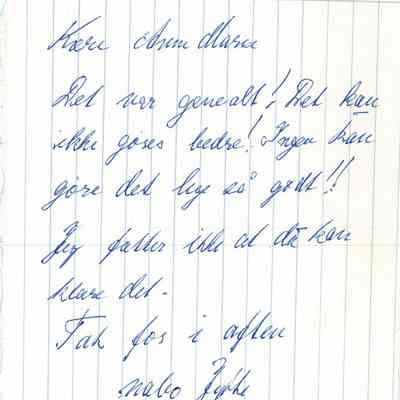 Kære Anne Marie
Det var genealt! Det kan
ikke gøres bedre! Ingen kan
gøre det lige så godt!!
Jeg fatter ikke at du kan
klare det -
Tak for i aften
nabo Jytte